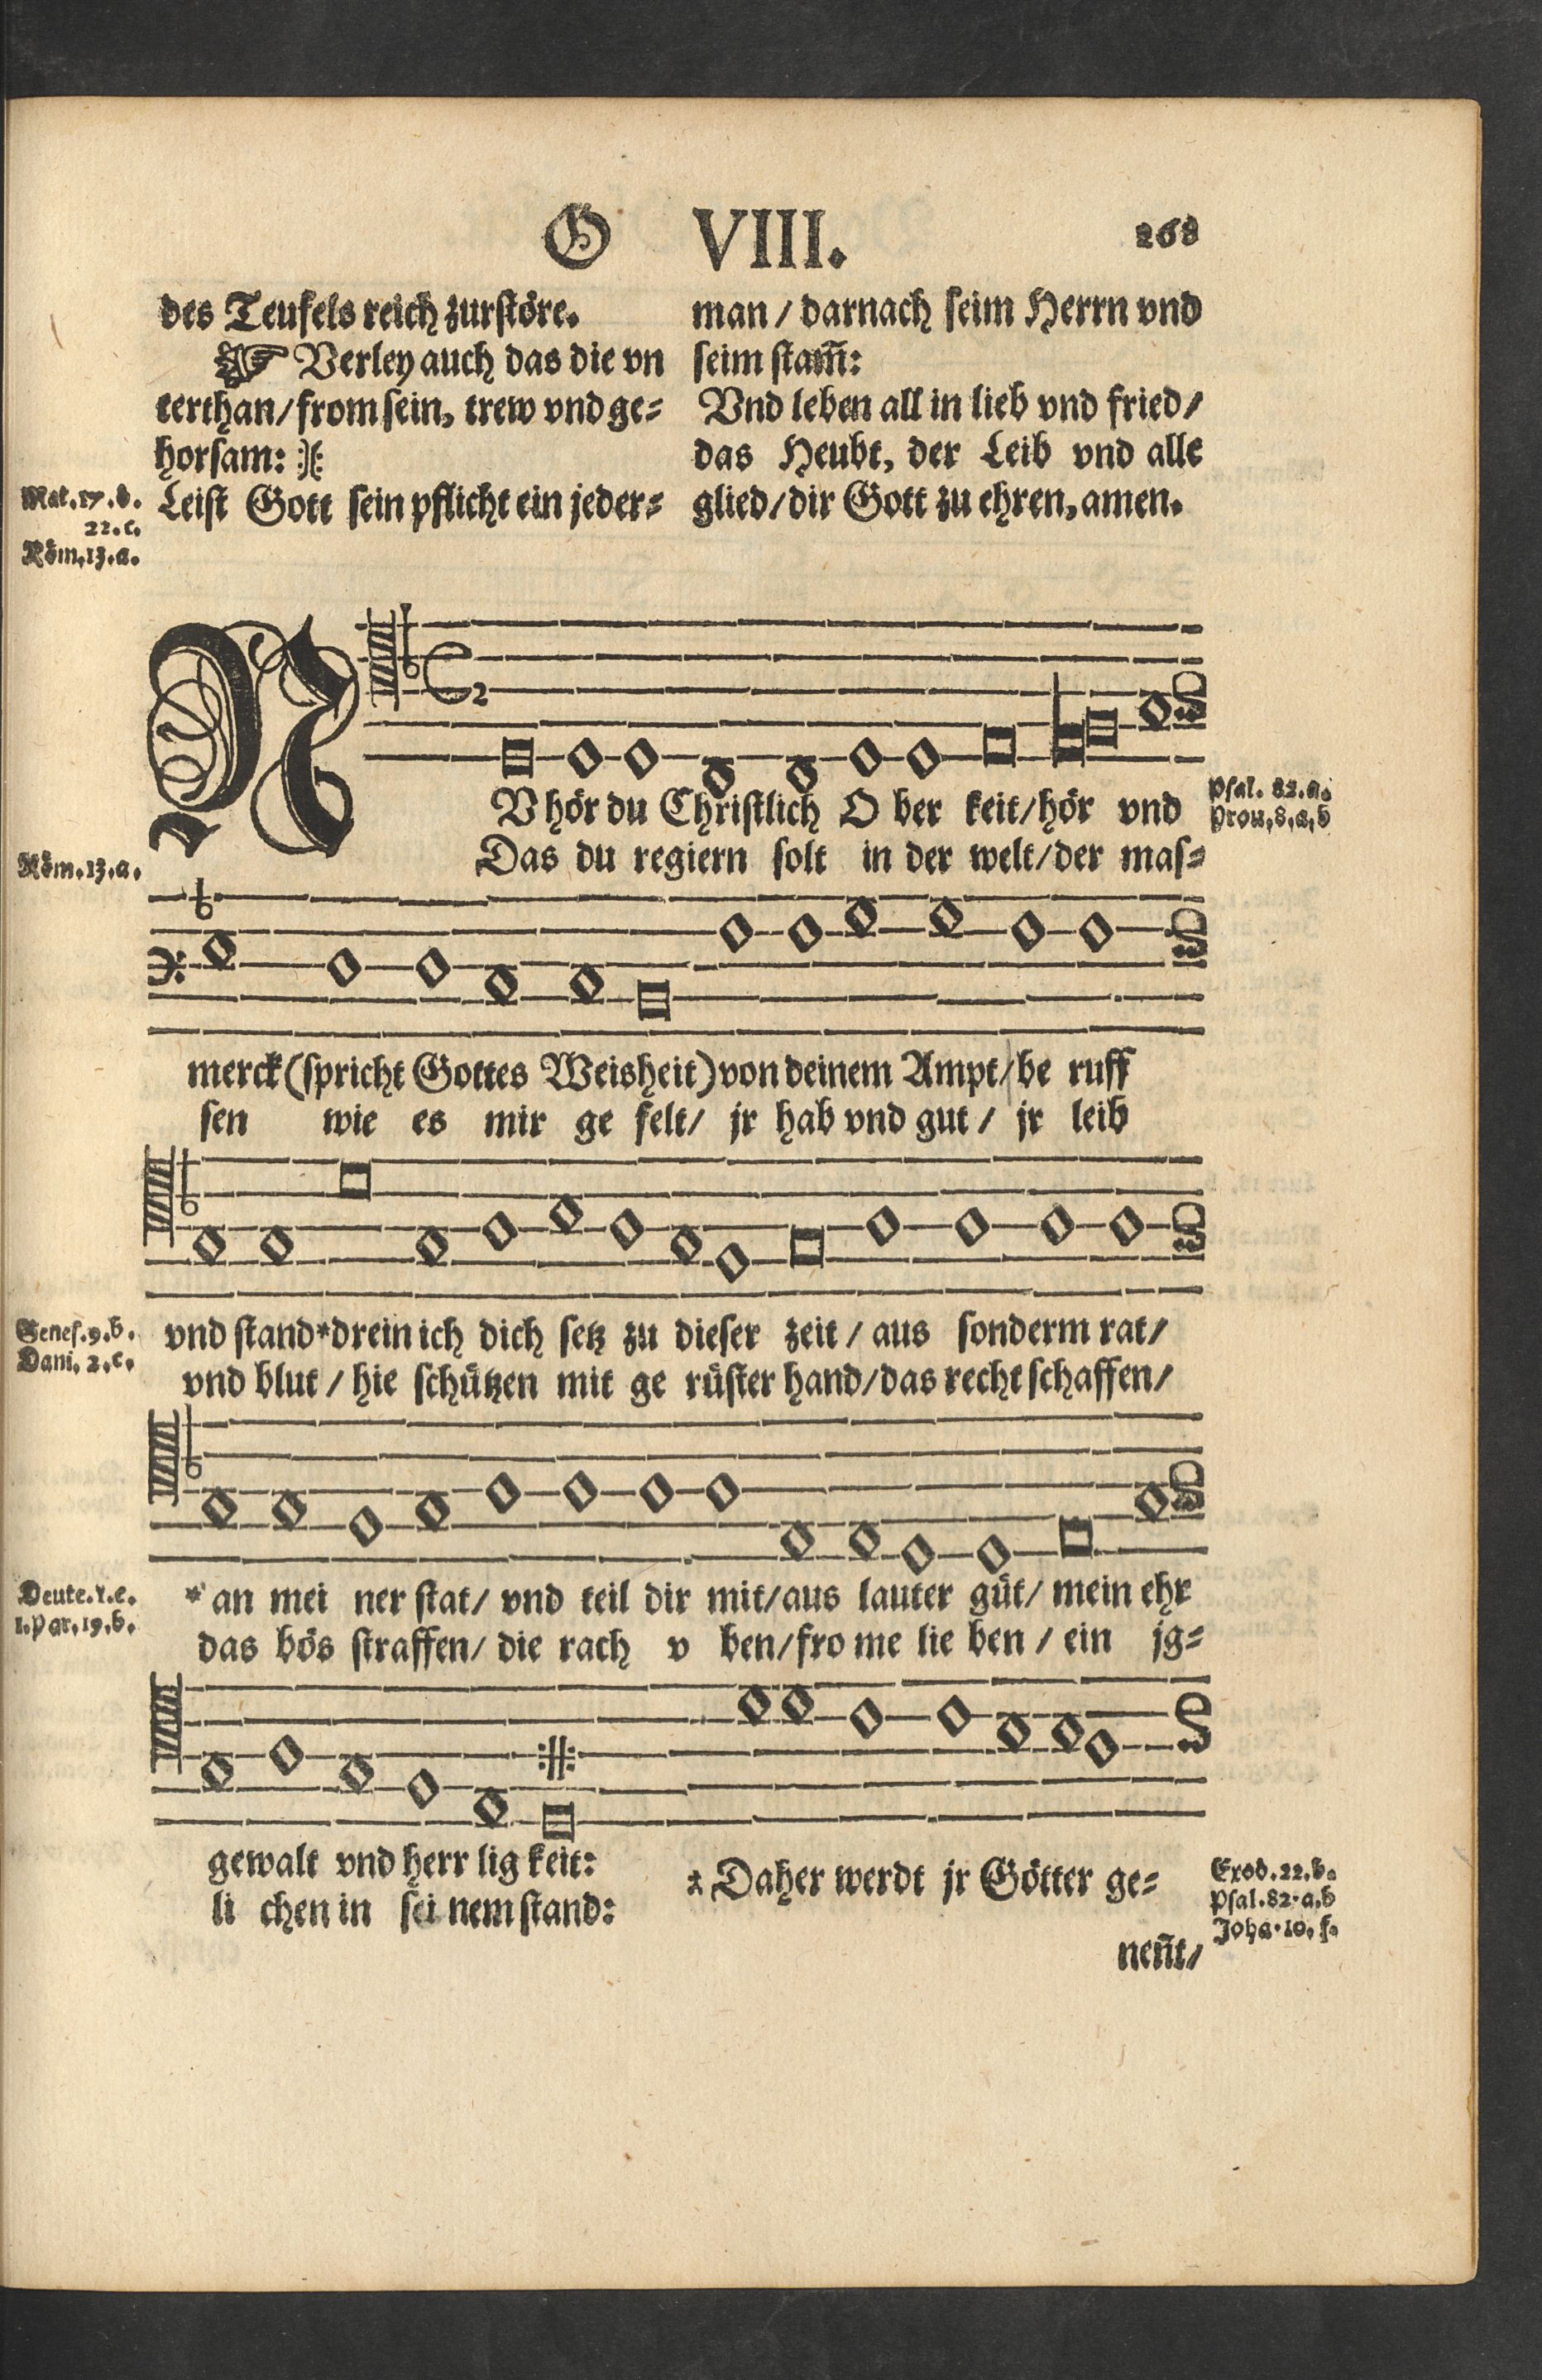 G VIII. 268
des Teufels reich zurstöre.
Verley auch das die vn
terthan/from sein, trew vnd ge=
horsam:
Mat.17.d.
22.c.
Röm.13.a.
Leist Gott sein pflicht ein jeder=
man/darnach seim Herrn vnd
seim stam̃:
Vnd leben all in lieb vnd fried/
das Heubt, der Leib vnd alle
glied/dir Gott zu ehren, amen.
NV hör du Christlich O ber keit/hör vnd
Psal. 82.a.
Prou.8.a,b
Das du regiern solt in der welt/der mas=
Röm.13.a.
merck(spricht Gottes Weisheit)von deinem Ampt/be ruff
sen wie es mir ge felt/ jr hab vnd gut/ jr leib
Genes.9.b.
Dani. 2.c.
vnd stand*drein ich dich setz zu dieser zeit/aus sonderm rat/
vnd blut/hie schützen mit ge rüster hand/das recht schaffen/
Deute.1.e.
1.Par.19.b.
*an mei ner stat/ vnd teil dir mit/aus lauter güt/mein ehr
das bös straffen/die rach v ben/fro me lie ben/ein jg=
gewalt vnd herr lig keit:
li chen in sei nem stand:
Daher werdt jr Götter ge=
Exod.22.b.
Psal.82.a,b
Joha.10.f.
neñt/